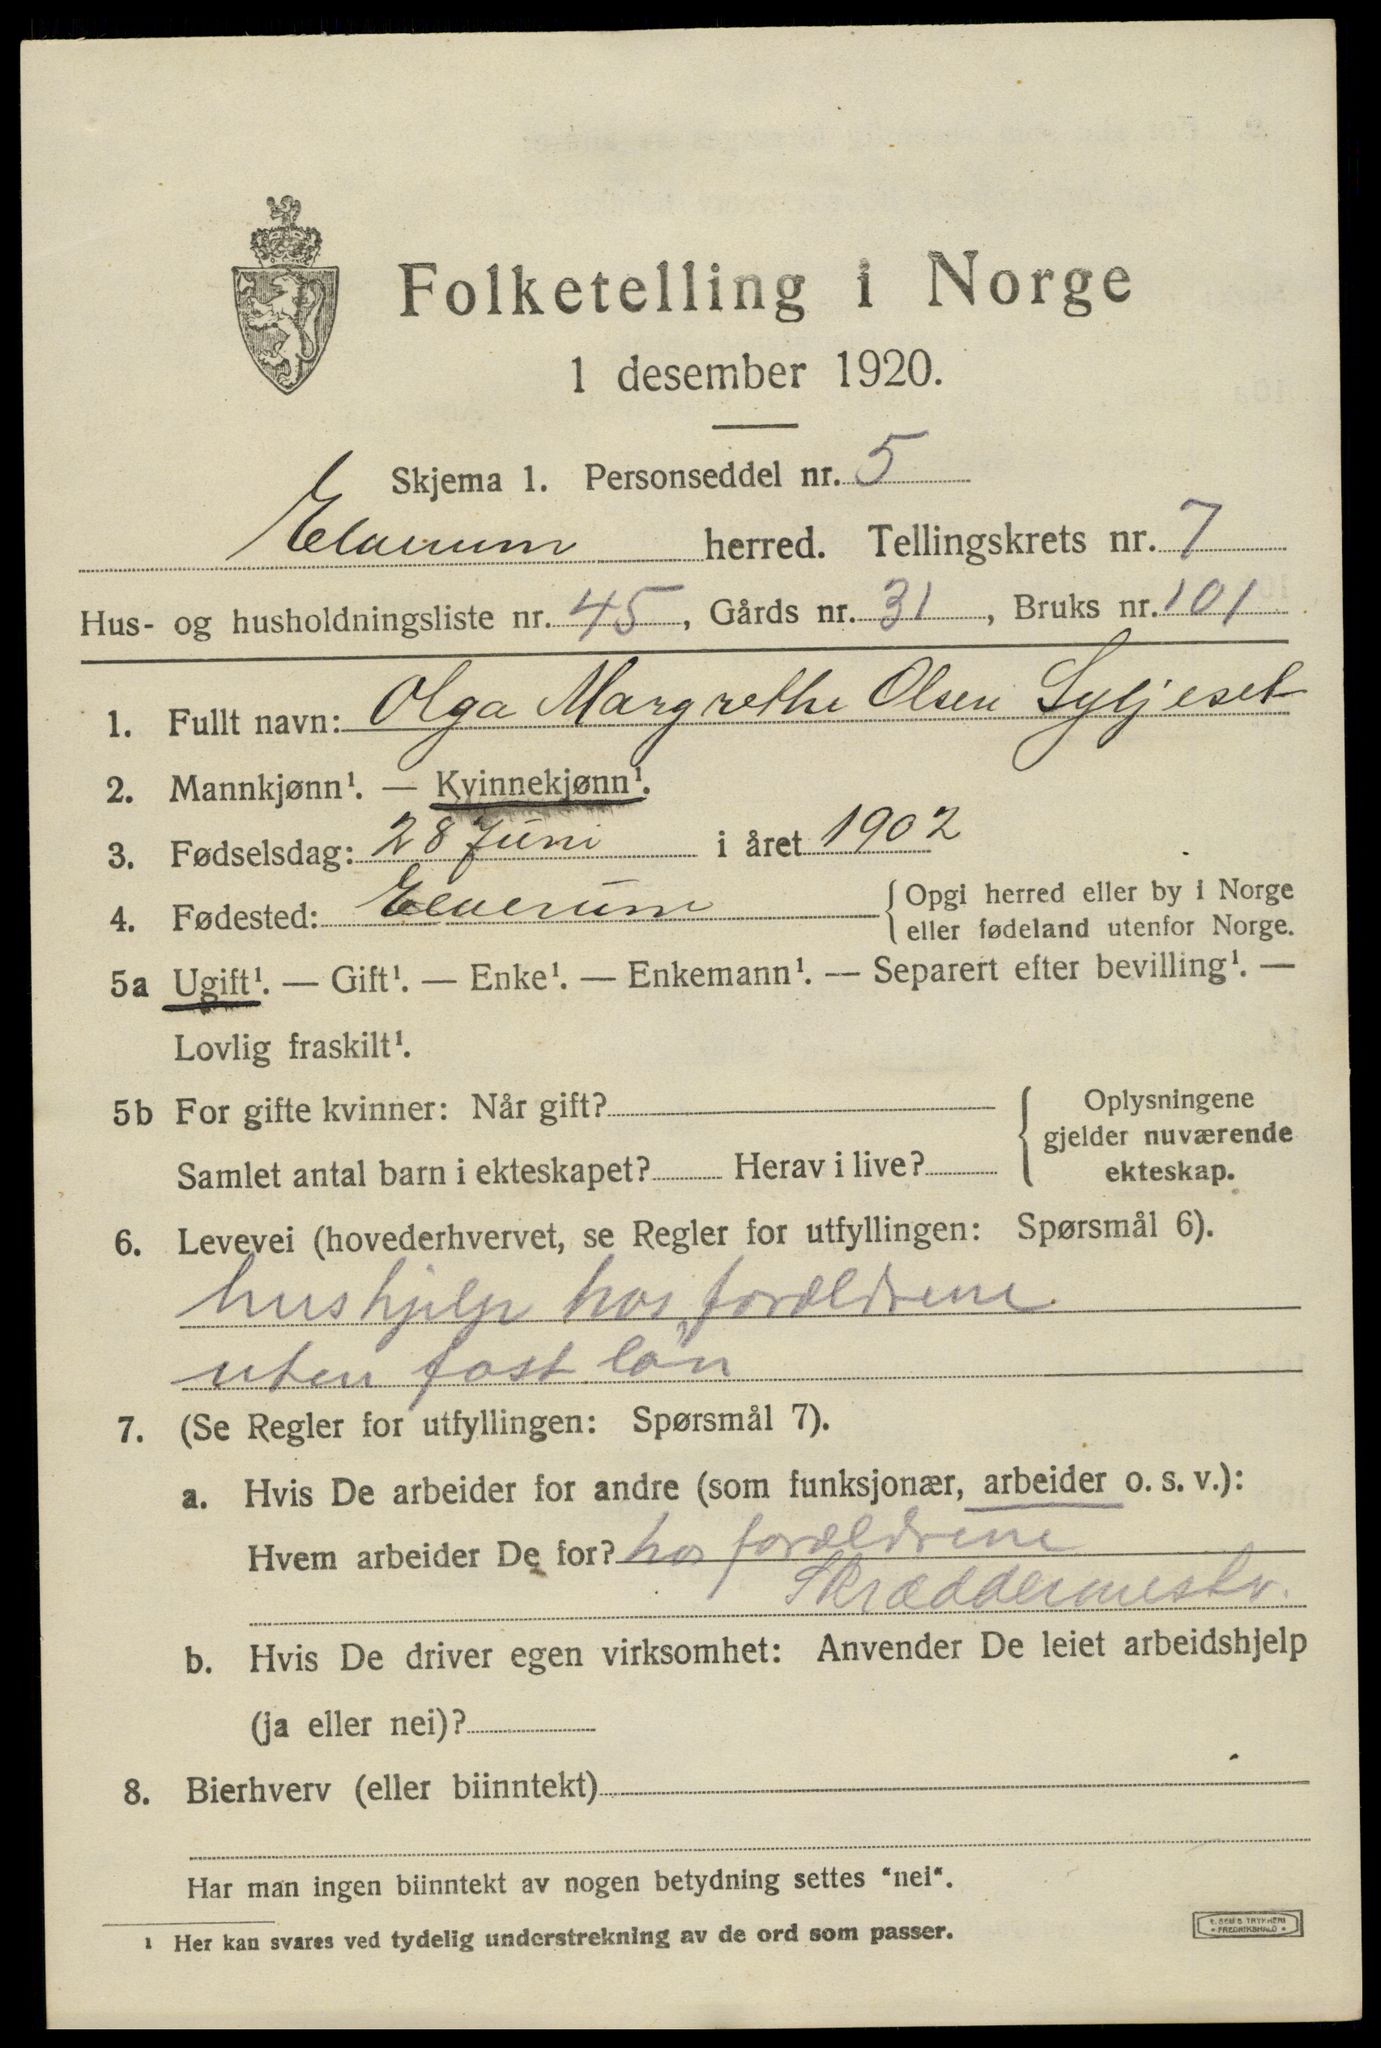 Folketelling i Norge
1 desember 1920.
Skjema 1. Personseddel nr. 5
Elverum herred. Tellingskrets nr. 7
Hus- og husholdningsliste nr. 45, Gårds nr. 31, Bruks nr. 101
1. Fullt navn: Olga Margrethe Olsen Syljeset
2. Mannkjønn¹. — Kvinnekjønn¹.
3. Fødselsdag: 28 Juni i året 1902
4. Fødested: Elverum { Opgi herred eller by i Norge
eller fødeland utenfor Norge.
5a Ugift¹. — Gift¹. — Enke¹. — Enkemann¹. — Separert efter bevilling¹. —
Lovlig fraskilt¹.
5b For gifte kvinner: Når gift? { Oplysningene
gjelder nuværende
Samlet antal barn i ekteskapet? Herav i live? ekteskap.
6. Levevei (hovederhvervet, se Regler for utfyllingen: Spørsmål 6).
hushjelp hos forældrene
uten fast løn
7. (Se Regler for utfyllingen: Spørsmål 7).
a. Hvis De arbeider for andre (som funksjonær, arbeider o. s. v.):
Hvem arbeider De for? hos forældrene
Skræddermestr.
b. Hvis De driver egen virksomhet: Anvender De leiet arbeidshjelp
(ja eller nei)?
8. Bierhverv (eller biinntekt)
Har man ingen biinntekt av nogen betydning settes "nei".
¹ Her kan svares ved tydelig understrekning av de ord som passer.
E. SEM'S TRYKKERI
FREDRIKSHALD